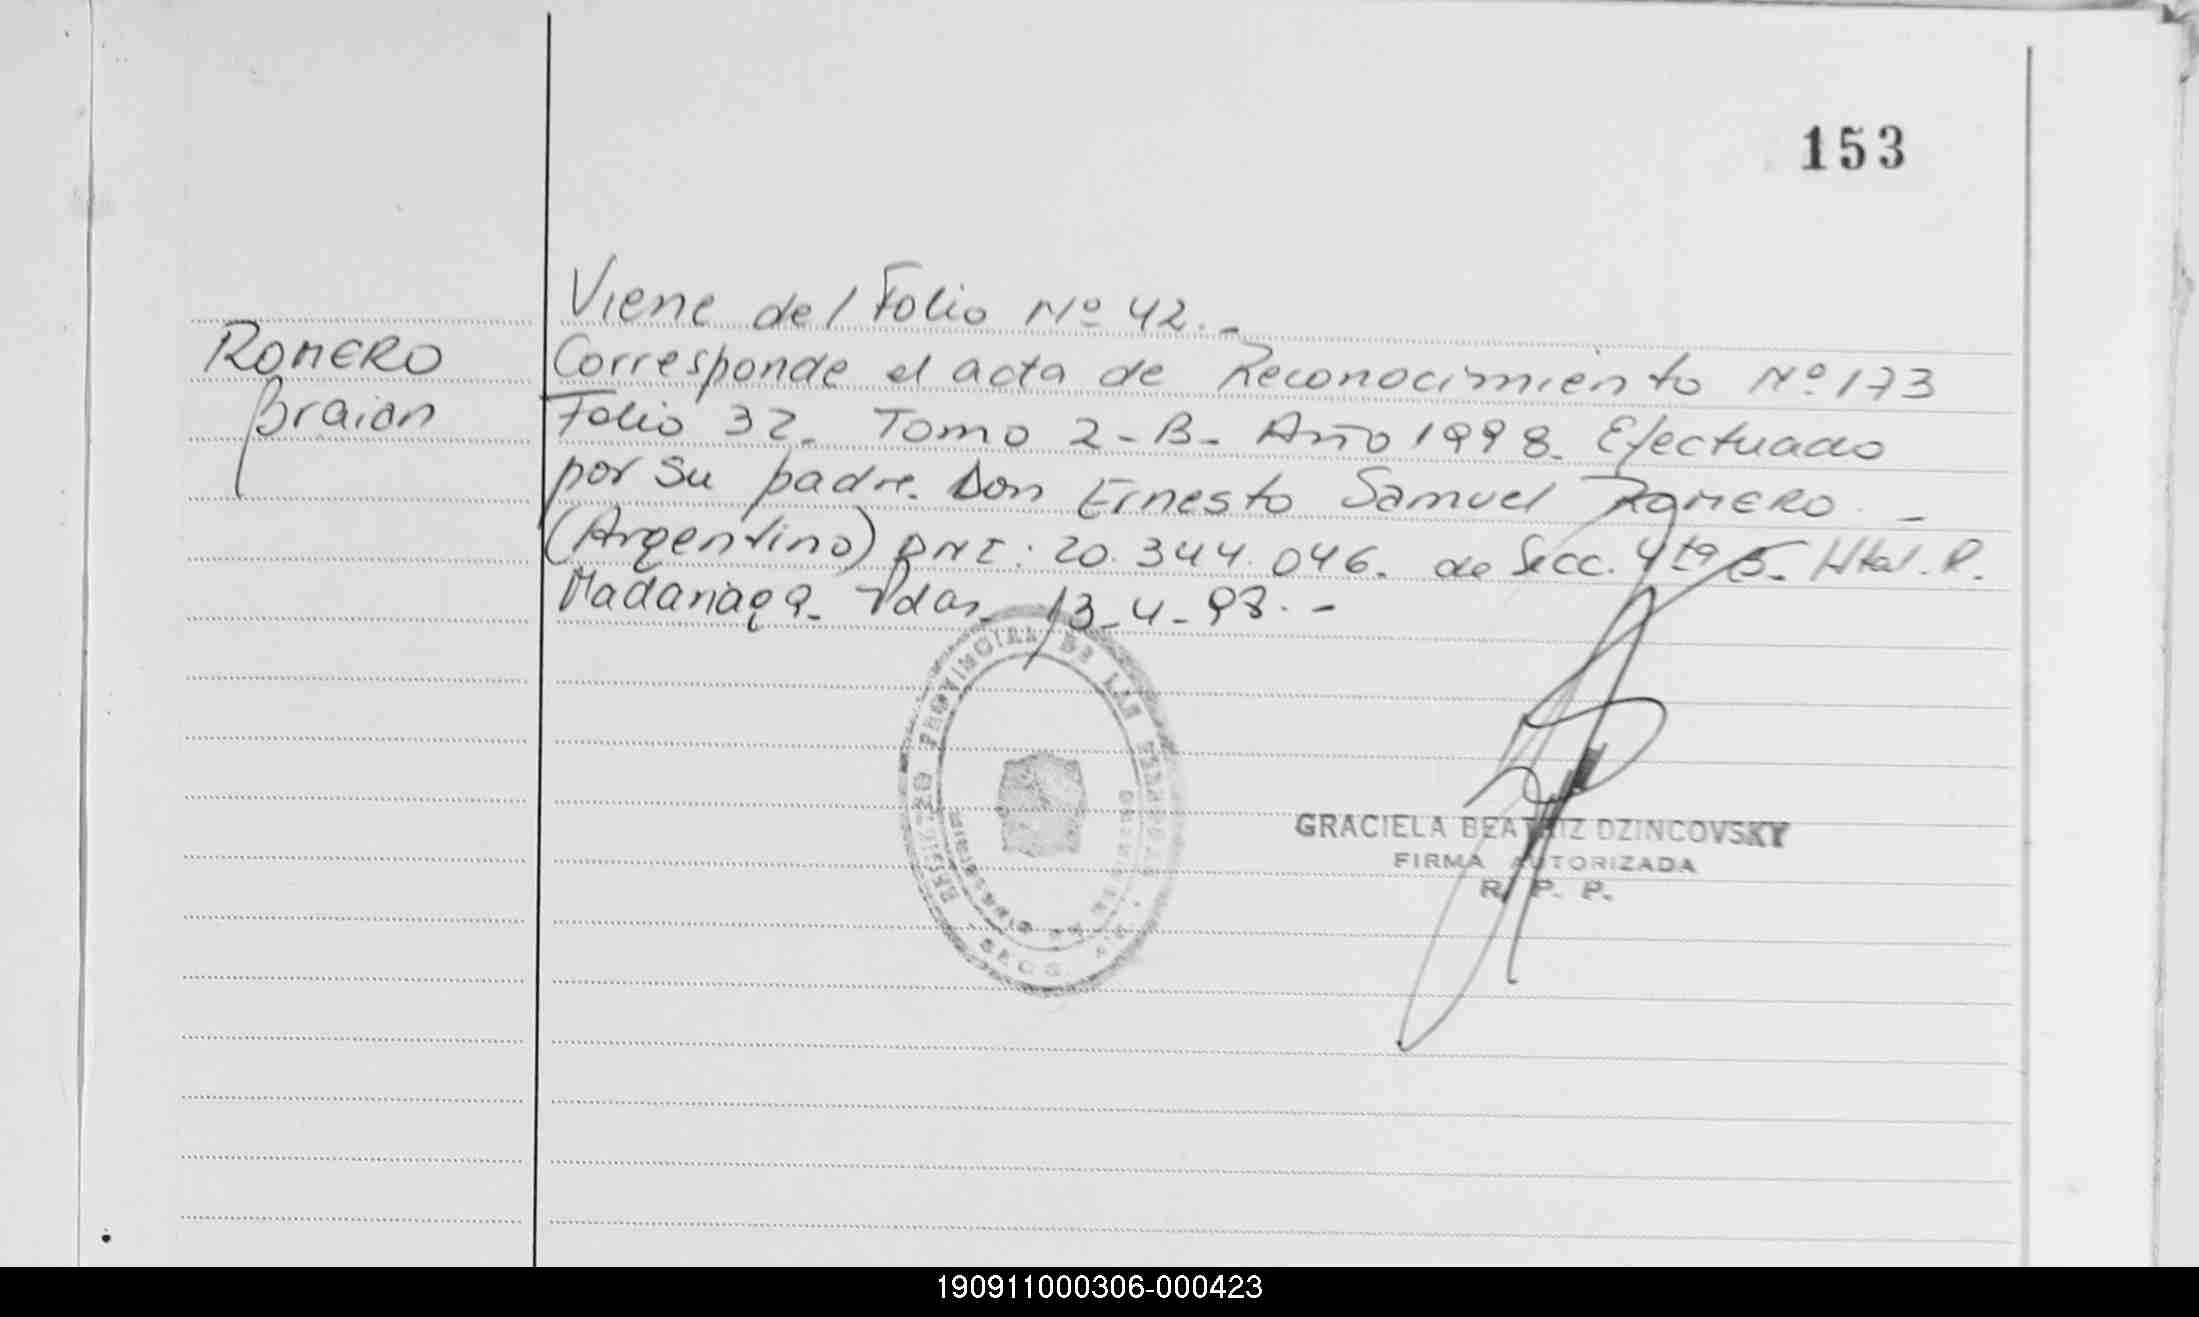 153
Viene del Folio Nº 42.-
ROMERO
Braian
Corresponde el acta de Reconocimiento Nº 173
Folio 32. Tomo 2-B- Año 1998. Efectuado
por su padre. Don Ernesto Samuel ROMERO. -
(Argentino) DNI: 20.344.046. de Secc. 4ta B. Htal. R.
Madariaga. Pdas. 13-4-98.-
REGISTRO PROVINCIAL DE LAS PERSONAS
GRACIELA BEATRIZ DZINCOVSKY
FIRMA AUTORIZADA
R. P. P.
190911000306-000423